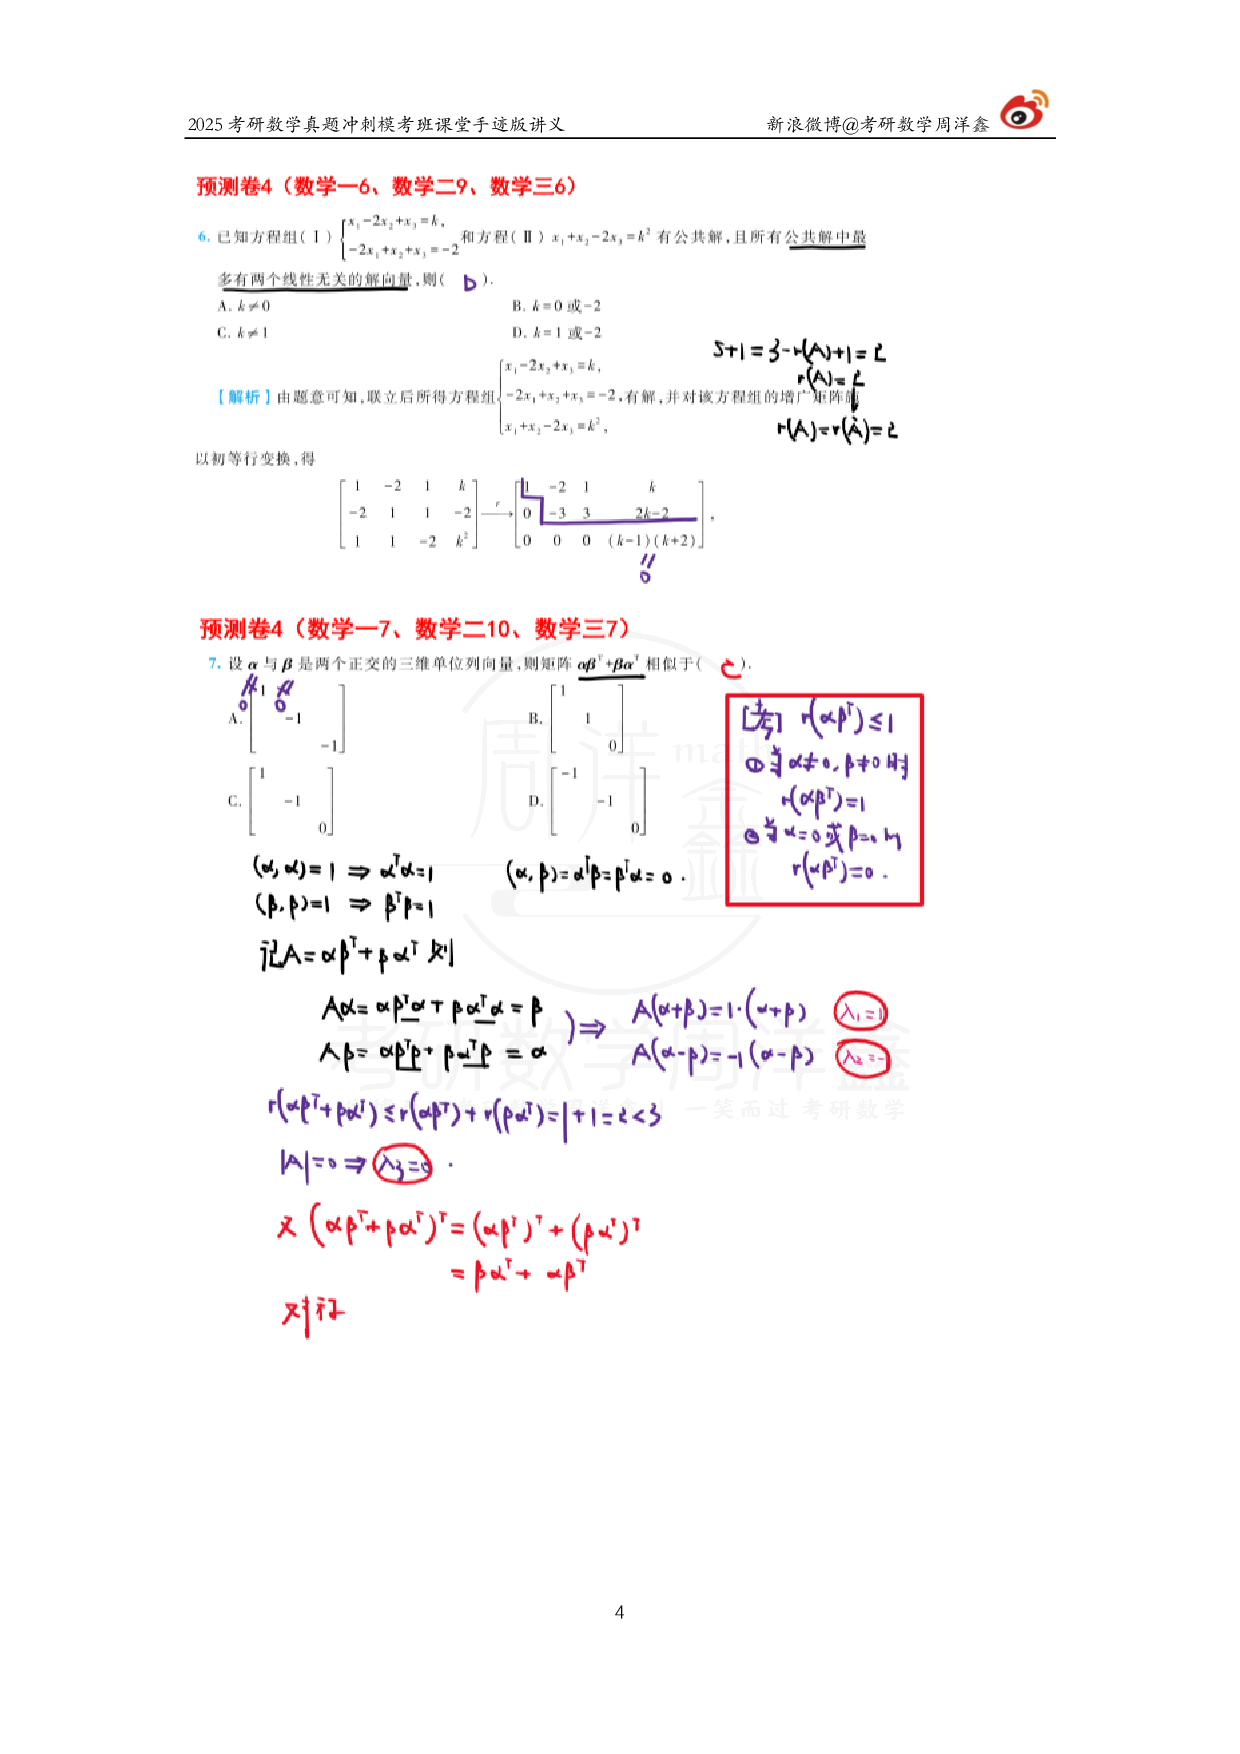 2025 考研数学真题冲刺模考班课堂手迹版讲义 新浪微博@考研数学周洋鑫
预测卷4（数学一6、数学二9、数学三6）
6. 已知方程组(Ⅰ){x₁-2x₂+x₃=k, -2x₁+x₂+x₃=-2 和方程(Ⅱ) x₁+x₂-2x₃=k² 有公共解,且所有公共解中最
多有两个线性无关的解向量,则( D ).
A. k≠0 B. k=0 或-2
C. k≠1 D. k=1 或-2
S+1=3-r(A)+1=2
r(A)=2
r(A)=r(Ā)=2
【解析】由题意可知,联立后所得方程组{x₁-2x₂+x₃=k, -2x₁+x₂+x₃=-2, x₁+x₂-2x₃=k², 有解,并对该方程组的增广矩阵做
以初等行变换,得
[1 -2 1 k] [1 -2 1 k]
[-2 1 1 -2] r→ [0 -3 3 2k-2] ,
[1 1 -2 k²] [0 0 0 (k-1)(k+2)]
=
0
预测卷4（数学一7、数学二10、数学三7）
7. 设 α 与 β 是两个正交的三维单位列向量,则矩阵 αβᵀ+βαᵀ 相似于( C ).
≠ ≠
0 0
A. [1 -1 -1] B. [1 1 0]
C. [1 -1 0] D. [-1 -1 0]
r(αβᵀ)≤1
① 当α≠0,β≠0时
r(αβᵀ)=1
② 当α=0或β=0时
r(αβᵀ)=0.
(α,α)=1 ⇒ αᵀα=1 (α,β)=αᵀβ=βᵀα=0.
(β,β)=1 ⇒ βᵀβ=1
记A=αβᵀ+βαᵀ 则
Aα=αβᵀα+βαᵀα=β
Aβ=αβᵀβ+βαᵀβ=α
⇒ A(α+β)=1·(α+β) λ₁=1
A(α-β)=-1(α-β) λ₂=-1
r(αβᵀ+βαᵀ)≤r(αβᵀ)+r(βαᵀ)=1+1=2<3
|A|=0⇒λ₃=0.
又(αβᵀ+βαᵀ)ᵀ=(αβᵀ)ᵀ+(βαᵀ)ᵀ
=βαᵀ+αβᵀ
对称
周洋鑫 math
考研数学周洋鑫
一笑而过 考研数学
4